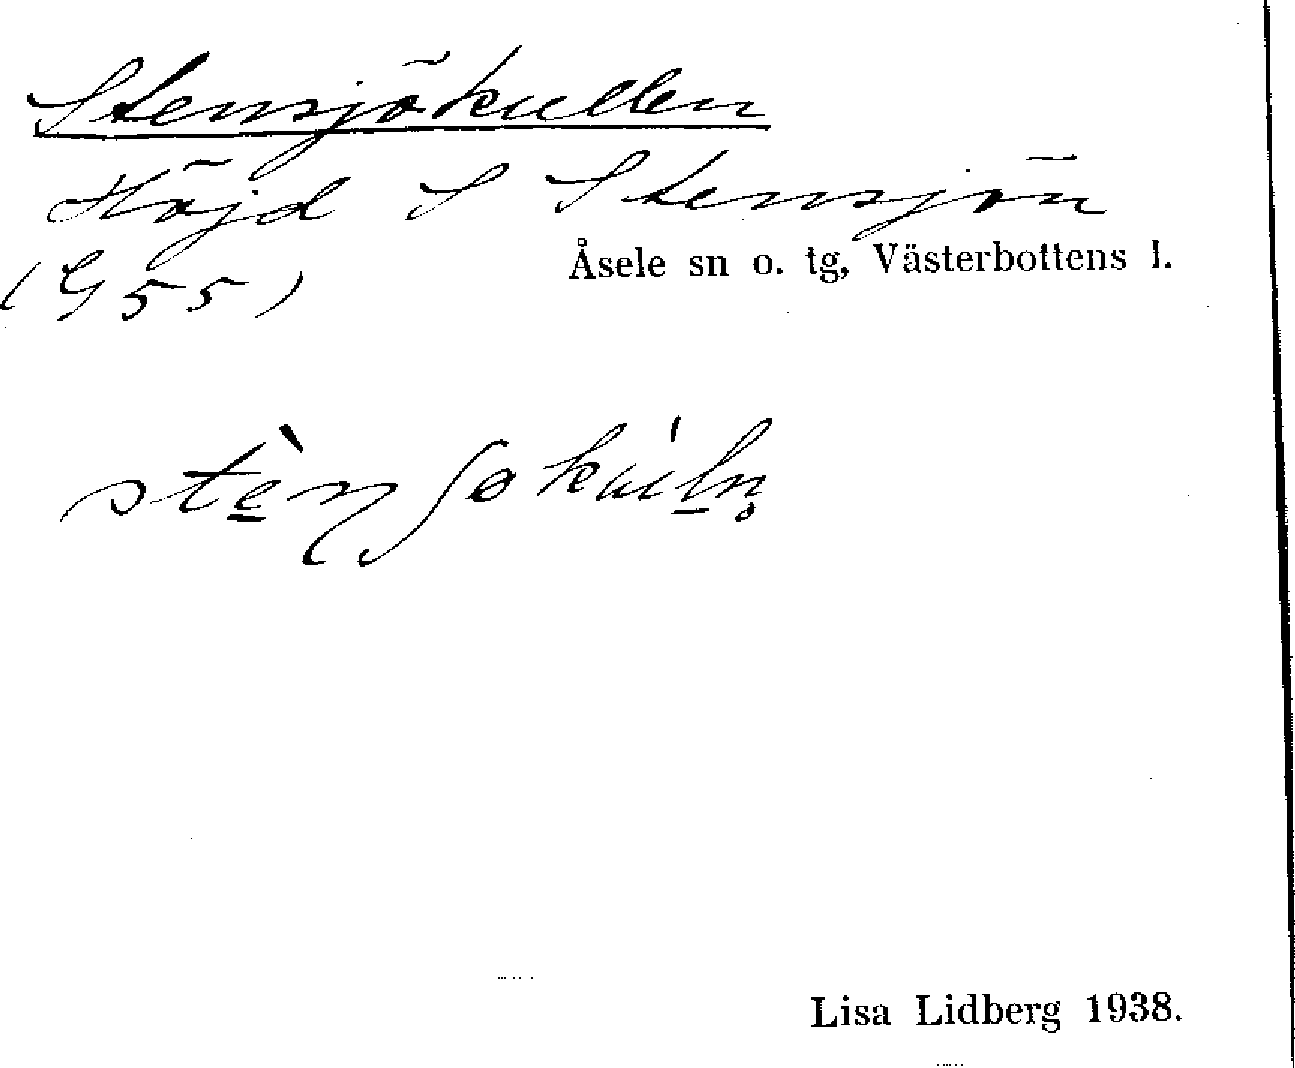 Stensjökullen
Höjd S Stensjön
(G 55)
Åsele sn o. tg, Västerbottens l.
Lisa Lidberg 1938.